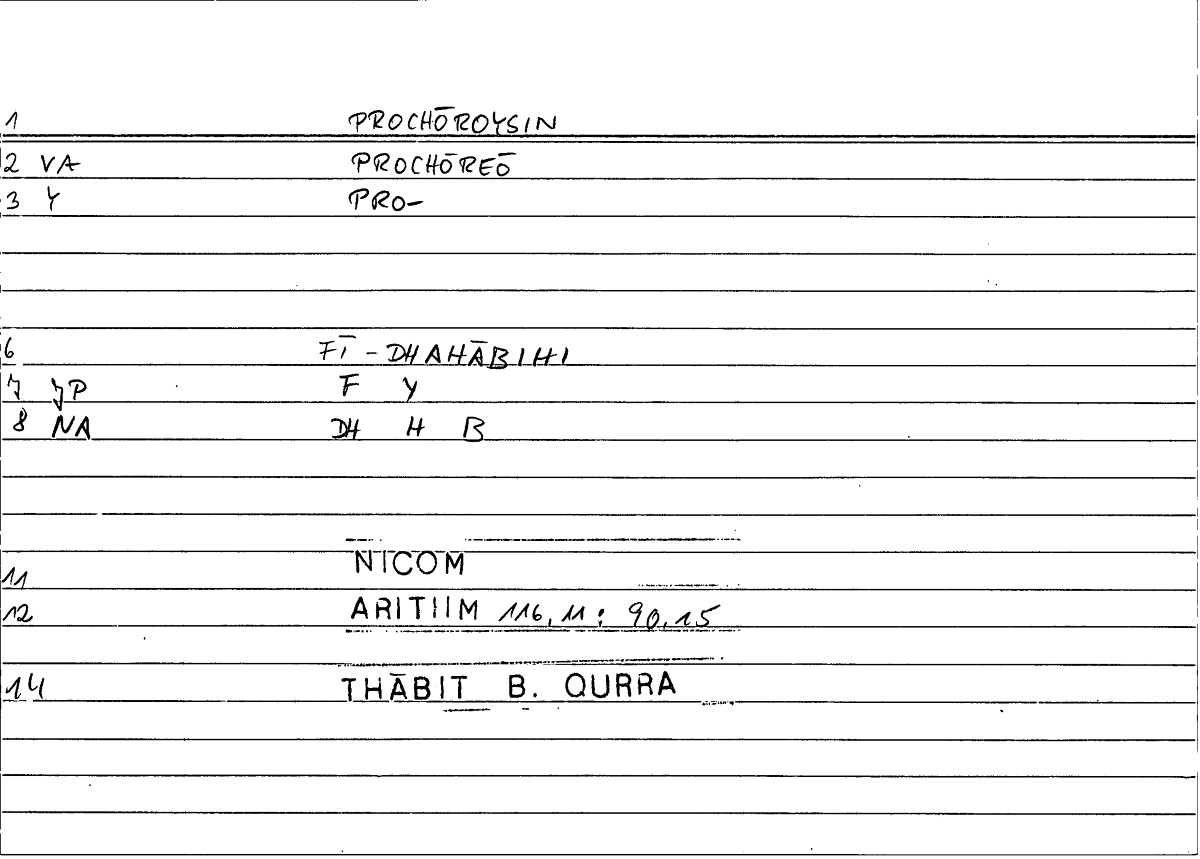 1 PROCHŌROYSIN
2 VA PROCHŌREŌ
3 Y PRO-
6 FĪ - DHAHĀBIHI
7 JP F Y
8 NA DH H B
11 NICOM
12 ARITIIM 116,11 : 90,15
14 THĀBIT B. QURRA